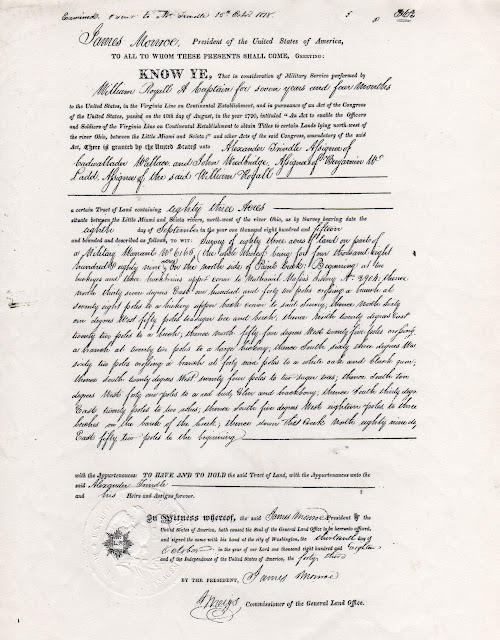 Examined & sent to Mr Trindle 15th Octbr 1818.
James Monroe, President of the United States of America,
TO ALL TO WHOM THESE PRESENTS SHALL COME, GREETING:
KNOW YE, That in consideration of Military Service performed by
William Royall A Captain for seven years and four Months
to the United States, in the Virginia Line on Continental Establishment and in pursuance of an Act of the Congress
of the United States, passed on the 10th day of August, in the year 1790, intituled "An Act to enable the Officers
and Soldiers of the Virginia Line on Continental Establishment to obtain Titles to certain Lands lying north-west of
the river Ohio, between the Little Miami and Sciota;" and other Acts of the said Congress, amendatory of the said
Act, There is granted by the United States unto Alexander Trindle Assignee of
Cadwallader Wallace and John Assignee of Benjamin W.
Ladd, Assignee of the said William Royall
a certain Tract of Land containing eighty three Acres
situate between the Little Miami and Sciota rivers, north-west of the river Ohio, as by Survey bearing date the
eighth day of September in the year one thousand eight hundred and fifteen
and bounded and described as follows, TO WIT: Survey of eighty three acres of land on part of
a Military Warrant No 6165 (the whole whereof being for four thousand eight
hundred & eighty nine acres) on the north side of Paint Creek: Beginning at two
hickorys and three upper corner to Nathaniel Massies Survey No thence
north thirty nine degrees East one hundred and forty six poles crossing a branch at
seventy eight poles to a hickory upper back corner to said Survey, thence North sixty
one degrees West fifty poles to a sugar tree and beech, thence North twenty degrees East
twenty two poles to a beech, thence north fifty four degrees West twenty five poles crossing
a branch at twenty two poles to a large hickory, thence South sixty three degrees West
sixty two poles crossing a branch at forty nine poles to a white oak and black gum;
thence South twenty degrees West seventy four poles to two sugar trees; thence South ten
degrees West forty one poles to a red bud, Elm and hackberry; thence South thirty degrees
East twenty poles to two ashes; thence South five degrees West eighteen poles to three
beeches on the bank of the Creek; thence down the Creek North eighty nine degrees
East fifty two poles to the beginning
with the Appurtenances: TO HAVE AND TO HOLD the said Tract of Land, with the Appurtenances unto the
said Alexander Trindle
and his Heirs and Assigns forever.
In Witness whereof, the said James Monroe President of the
United States of America, hath caused the Seal of the General Land Office to be hereunto affixed,
and signed the same with his hand at the city of Washington, the day
October in the year of our Lord one thousand eight hundred and eighteen
and of the Independence of the United States of America, the forty third
BY THE PRESIDENT, James Monroe
J. Meigs Commissioner of the General Land Office.